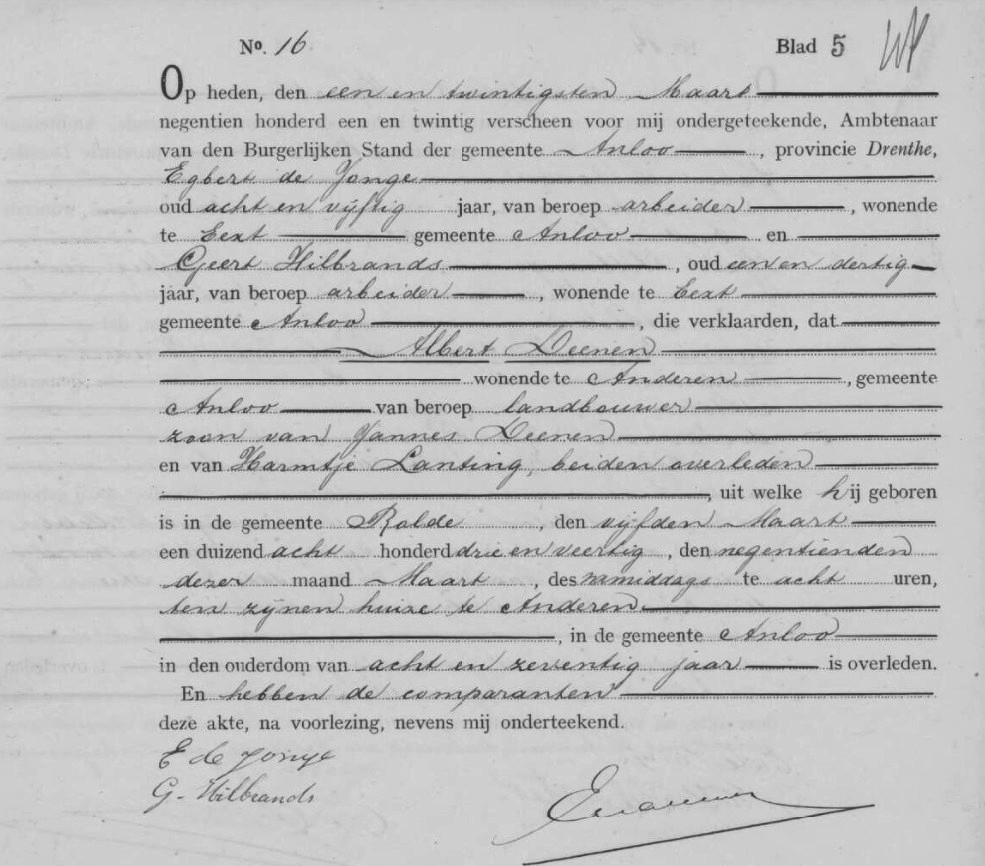 No. 16 Blad 5
Op heden, den een en twintigsten Maart
negentien honderd een en twintig verscheen voor mij ondergeteekende, Ambtenaar
van den Burgerlijken Stand der gemeente Anloo, provincie Drenthe,
Egbert de Jonge
oud acht en vijftig jaar, van beroep arbeider, wonende
te Eext gemeente Anloo en
Geert Hilbrands, oud een en dertig
jaar, van beroep arbeider, wonende te Eext
gemeente Anloo, die verklaarden, dat
Albert Deenen
wonende te Anderen, gemeente
Anloo van beroep landbouwer
zoon van Jannes Deenen
en van Harmtje Lanting, beiden overleden
, uit welke hij geboren
is in de gemeente Rolde, den vijfden Maart
een duizend acht honderd drie en veertig, den negentienden
dezer maand Maart, des namiddags te acht uren,
ten zijnen huize te Anderen
, in de gemeente Anloo
in den ouderdom van acht en zeventig jaar is overleden.
En hebben de comparanten
deze akte, na voorlezing, nevens mij onderteekend.
E de Jonge
G. Hilbrands